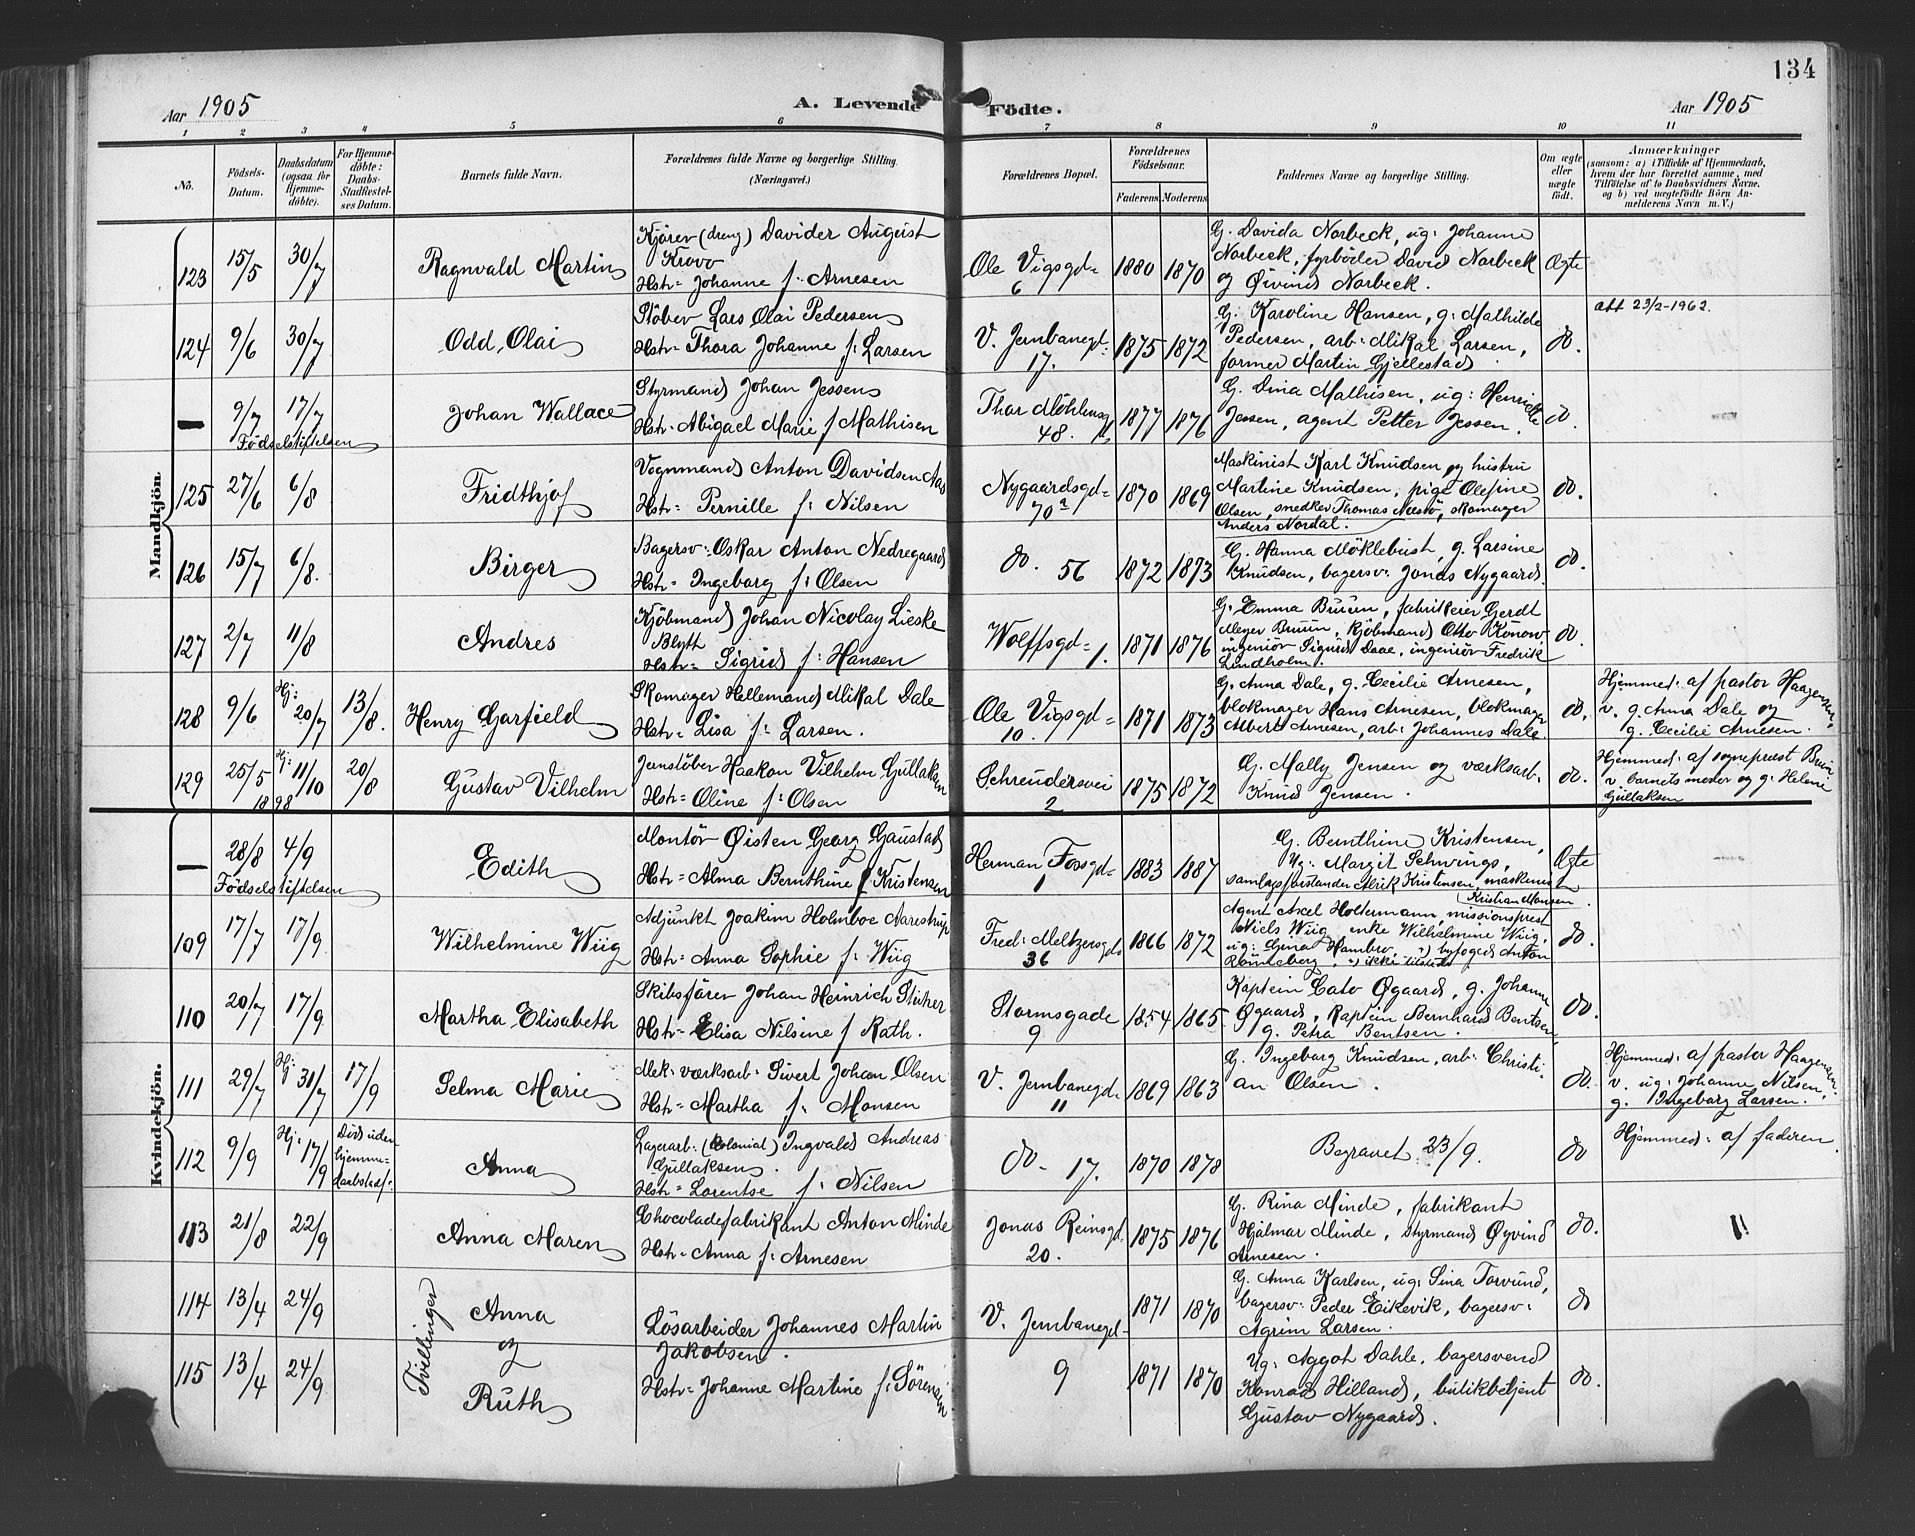 134
Aar 1905 A. Levende Födte. Aar 1905
1 2 3 4 5 6 7 8 9 10 11
No. Födsels-Datum. Daabsdatum (ogsaa for Hjemmedöbte). For Hjemmedöbte: Daabs-Stadfæstelses Datum. Barnets fulde Navn. Forældrenes fulde Navne og borgerlige Stilling. (Næringsvei.) Forældrenes Bopæl. Forældrenes Födselsaar. Faderens Moderens Faddernes Navne og borgerlige Stilling. Om ægte eller uægte födt. Anmærkninger (saasom: a) i Tilfælde af Hjemmedaab, hvem der har forrettet samme, med Tilföielse af to Daabsvidners Navne, og b) ved uægtefödte Börn Anmelderens Navn m. V.)
Mandkjön.
123 15/5 30/7 Ragnvald Martin
Kjörer (dreng) Davider August
Krovo
Hstr= Johanne f: Arnesen
Ole Vigsgd= 6 1880 1870
G. Davida Norbeck, ug: Johanne
Norbeck, fyrböder David Norbeck
og Öivind Norbeck.
Ægte
124 9/6 30/7 Odd Olai
Stöber Lars Olai Pedersen
Hstr= Thora Johanne f: Larsen
V. Jernbanegd= 17. 1875 1872
G: Karoline Hansen, g: Mathilde
Pedersen, arb: Mikal Larsen,
former Martin Gjellestad
do. att 23/2-1962.
— 9/7 17/7 Födselstiftelsen Johan Wallace
Styrmand Johan Jessen
Hstr= Abigael Marie f Mathisen
Thor Möhlensgd 48. 1877 1876
G. Dina Mathisen, ug: Henrikke
Jessen, agent Petter Jessen.
do.
125 27/6 6/8 Fridthjof
Vognmand Anton Davidsen Aas
Hstr= Pernille f: Nilsen
Nygaardsgd= 70a 1870 1869
Maskinist Karl Knudsen og hustru
Martine Knudsen, pige Olefine
Olsen, snedker Thomas Næsö, skomager
Anders Nordal.
do.
126 15/7 6/8. Birger
Bagersv: Oskar Anton Nedregaard
Hstr= Ingeborg f: Olsen
do. 56 1872 1873
G. Hanna Möklebust, g. Larsine
Knudsen, bagersv: Jonas Nygaard.
do.
127 2/7 11/8 Andres
Kjöbmand Johan Nicolay Lieske
Blyth
Hstr= Sigrid f: Hansen
Wolffsgd= 1. 1871 1876
G: Emma Bruun, fabrikeier Gerdt
Meyer Bruun, kjöbmand Otto Konow
ingeniör Sigurd Daae, ingeniör Fredrik
Lindholm.
do.
128 9/6 Hj: 20/7 13/8. Henry Garfield
Skomager Hellemand Mikal Dale
Hstr= Lisa f: Larsen.
Ole Vigsgd= 10. 1871 1873
G. Anna Dale, g. Cecilie Arnesen,
blokmager Hans Arnesen, blokmager
Albert Arnesen, arb: Johannes Dale
do.
Hjemmed: af pastor Haagensen,
v. g. Anna Dale og
g. Cecilie Arnesen.
129 25/5 1898 Hj: 11/10 20/8 Gustav Vilhelm
Jernstöber Haakon Vilhelm Gullaksen
Hstr= Oline f: Olsen
Schreudersvei 2 1875 1872
G. Mally Jensen og værksarb.
Knud Jensen.
do.
Hjemmed: af sogneprest Brun
v. barnets moder og g: Helene
Gullaksen
Kvindekjön.
— 28/8 4/9 Födselstiftelsen Edith
Montör Øisten Georg Gaustad
Hstr= Alma Bernthine f Kristensen
Herman Fossgd= 1 1883 1887
G. Bernthine Kristensen,
Ug: Margit Schwings,
samlagsforstander Alrik Kristensen, maskinist
Kristian Monsen.
Ægte
109 17/7 17/9. Wilhelmine Wiig
Adjunkt Joakim Holmboe Aarestrup
Hstr= Anna Sophie f: Wiig
Fred: Meltzersgd 36 1866 1872
Agent Axel Holtermann, missionsprest
Niels Wiig, enke Wilhelmine Wiig,
ug: Gina Hambro, byfoged Anton
Rönneberg, ikke tilstede
do.
110 20/7 17/9. Martha Elisabeth
Skibsförer Johan Heinrich Stüker
Hstr= Elisa Nilsine f Rath.
Stormsgade 9 1854 1865
Kaptein Cato Øgaard, g. Johanne
Øgaard, Kaptein Bernhard Bentsen,
g. Petra Bentsen.
do.
111 29/7 Hj 31/7 17/9 Selma Marie
Mek: værksarb= Sivert Johan Olsen
Hstr= Martha f: Monsen
V. Jernbanegd. 11 1869 1863
G. Ingeborg Knudsen, arb: Christi-
an Olsen.
do.
Hjemmed: af pastor Haagensen
v. ug: Johanne Nilsen,
g. Ingeborg Larsen.
112 9/9 Hj: 17/9 Död uden hjemme-daabstadf: Anna
Lagerarb: (Colonial) Ingvald Andreas
Gullaksen.
Hstr= Lorentse f: Nilsen
do- 17. 1870 1878
Begravet 23/9.
do
Hjemmed: af faderen.
113 21/8 22/9 Anna Maren
Chocoladefabrikant Anton Minde
Hstr= Anna f: Arnesen
Jonas Reinsgd. 20. 1875 1876
G. Rina Minde, fabrikant
Hjalmar Minde, styrmand Øyvind
Arnesen.
do.
114 13/4 24/9 Tvillinger Anna
og
Lösarbeider Johannes Martin
Jakobsen.
V. Jernbanegd- 1871 1870
G. Anna Karlsen, ug: Sina Torvund,
bagersv: Peder Eikevik, bagersv:
Agrim Larsen.
do
115 13/4 24/9 Ruth
Hstr= Johanne Martine f: Sörensen
9 1871 1870
Ug: Aggot Dahle, bagersvend
Konrad Hilland, butikbetjent
Gustav Nygaard.
do.